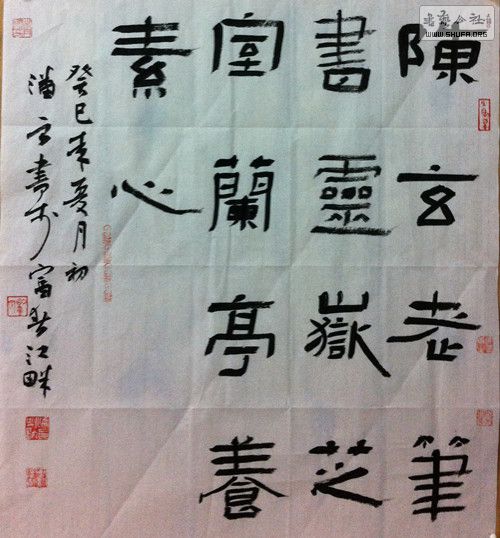 陳玄老筆
書靈嶽芝
室蘭亭養
素心
癸巳年夏月初
書於富春江畔
书艺公社
WWW.SHUFA.ORG